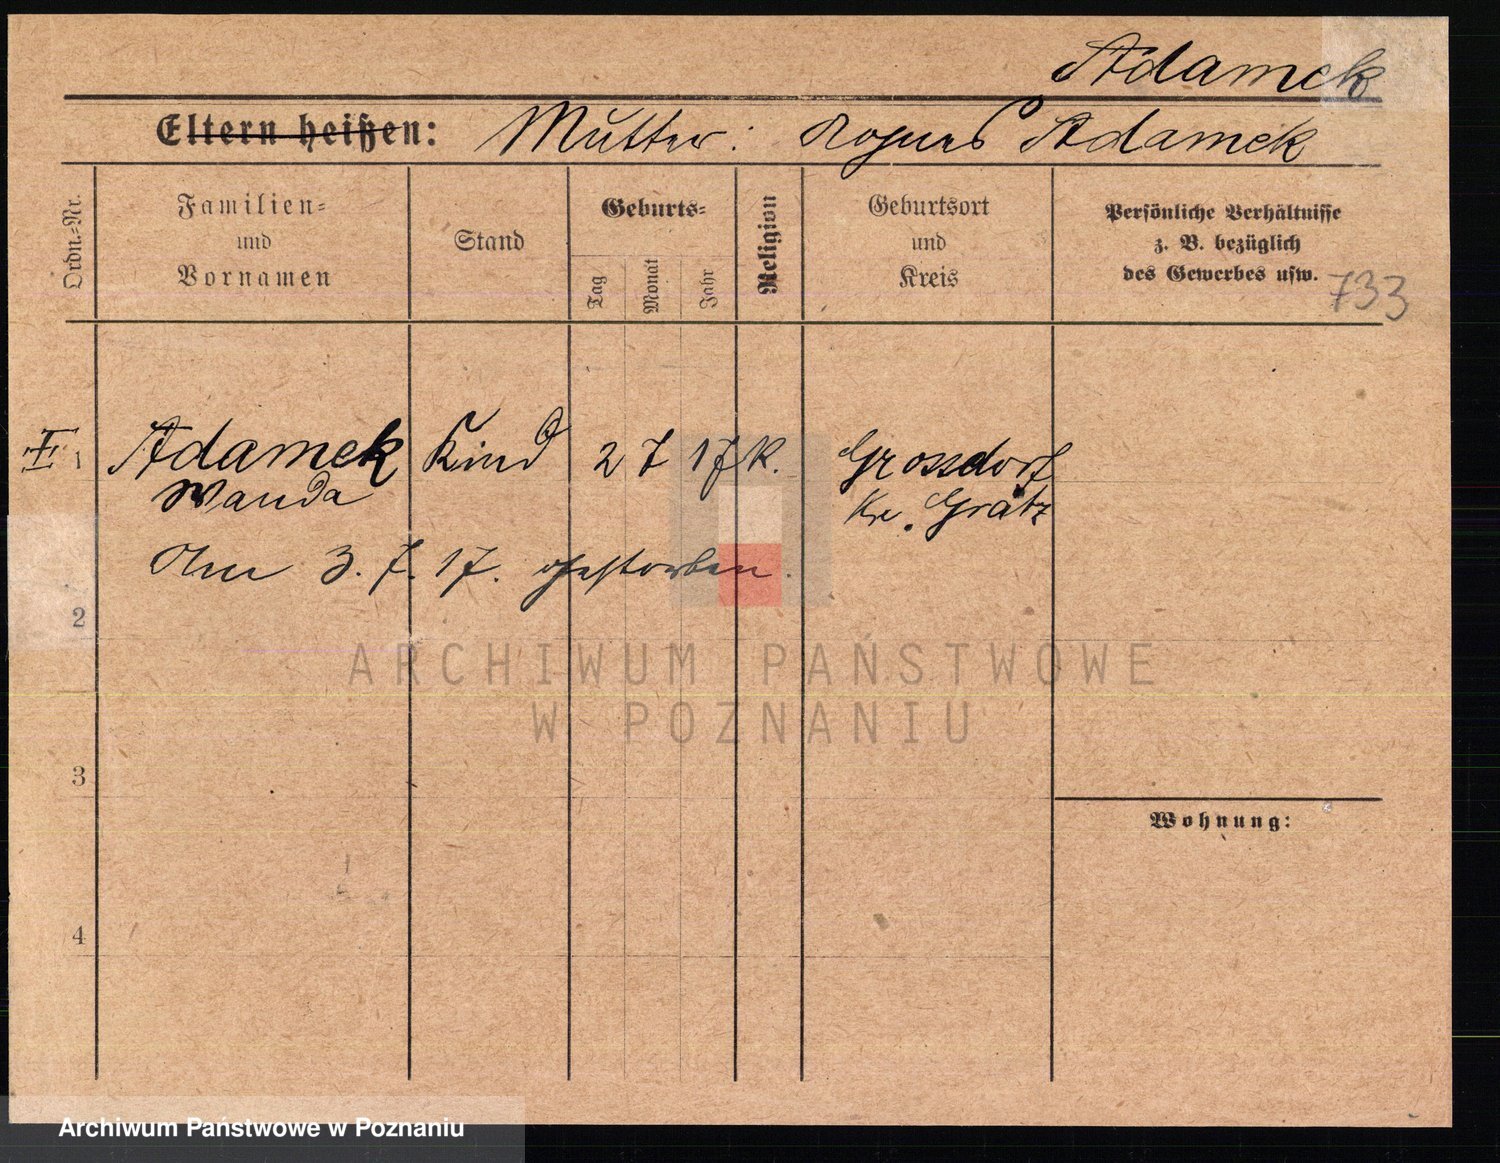 Adamek
Eltern heißen: Mutter: Adamek
Ordn.-Nr.
Familien-
und
Vornamen
Stand
Geburts-
Tag
Monat
Jahr
Religion
Geburtsort
und
Kreis
Persönliche Verhältnisse
z. B. bezüglich
des Gewerbes usw.
733
1 Adamek Kind 2 7 17 K. Grossdorf
Wanda Kr. Grätz
Am 3. 7. 17. gestorben.
2
ARCHIWUM PAŃSTWOWE
W POZNANIU
3
Wohnung:
4
Archiwum Państwowe w Poznaniu